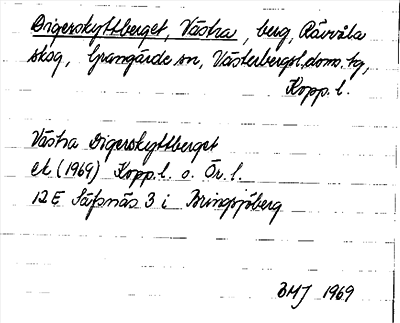 Digerskyttberget, Västra, berg, Rävvåla
skog, Grangärde sn, Västerbergsl. doms. hg,
Kopp. l.
Västra Digerskyttberget
ek (1969) Kopp. l. o. Ör. l.
12 E Säfsnäs 3 i Bringsjöberg
BMJ 1969